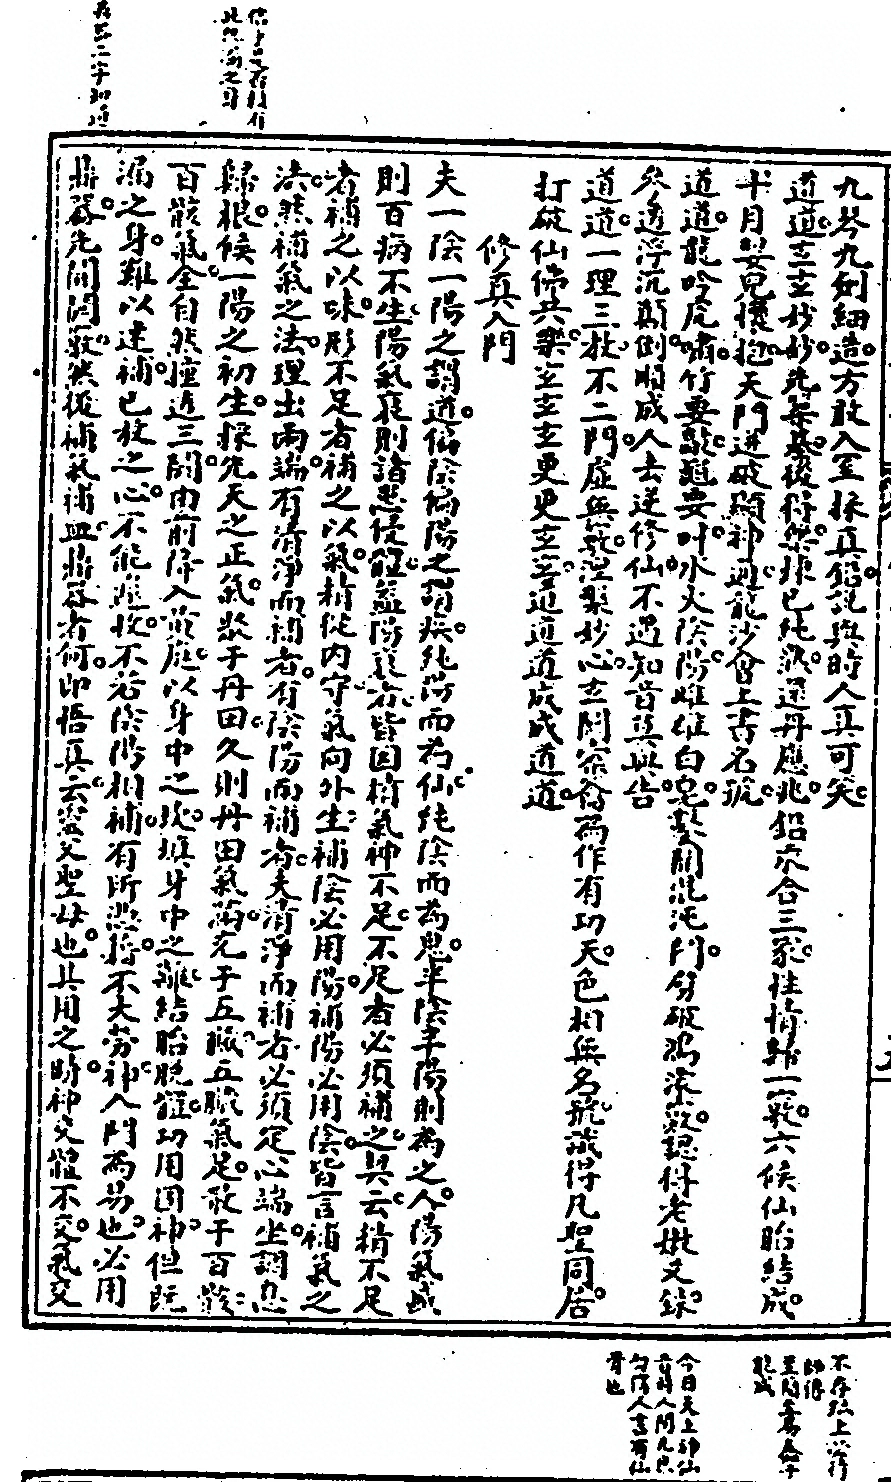 九琴九劍細造方敢入室採真鉛說與時人真可笑
道道玄玄妙妙先築基後得藥煉已純熟還丹應兆鉛汞合三家性情歸一竅六候仙胎結成
十月嬰兒懷抱天門迸破顯神通龍沙會上書名號
道道龍吟虎嘯竹要敲琴要叫水火陰陽雌雄白皂鼓開混沌門劈破鴻濛竅認得老嫩文銖
參透浮沉顛倒順成人去逆修仙不遇知音莫與告
道道一理三教不二門虛無竅涅槃妙心玄關宗為作有功天色相無名號識得凡聖同居
打破仙佛共樂玄玄玄更更玄玄道道道成成道道
修真入門
夫一陰一陽之謂道偏陰偏陽之謂疾純陽而為仙純陰而為鬼半陰半陽則為之人陽氣盛
則百病不生陽氣衰則諸惡侵體蓋陽衰者皆因精氣神不足不足者必須補之其云精不足
者補之以味形不足者補之以氣精從內守氣向外生補陰必用陽補陽必用陰皆言補氣之
法然補氣之法理出兩端有清淨而補者有陰陽而補者夫清淨而補者必須定心端坐調息
歸根候一陽之初生採先天之正氣聚于丹田久則丹田氣滿充于五臟五臟氣足散于百骸
百骸氣全自然撞透三關由前降入黃庭以身中之坎填身中之離結胎脫體功用固神但既
漏之身難以速補已放之心不能遽收不若陰陽相補有所憑據不大勞神入門為易也必用
鼎器先開關竅然後補氣補血鼎器者何即悟真云靈父聖母也其用之時神交體不交氣交